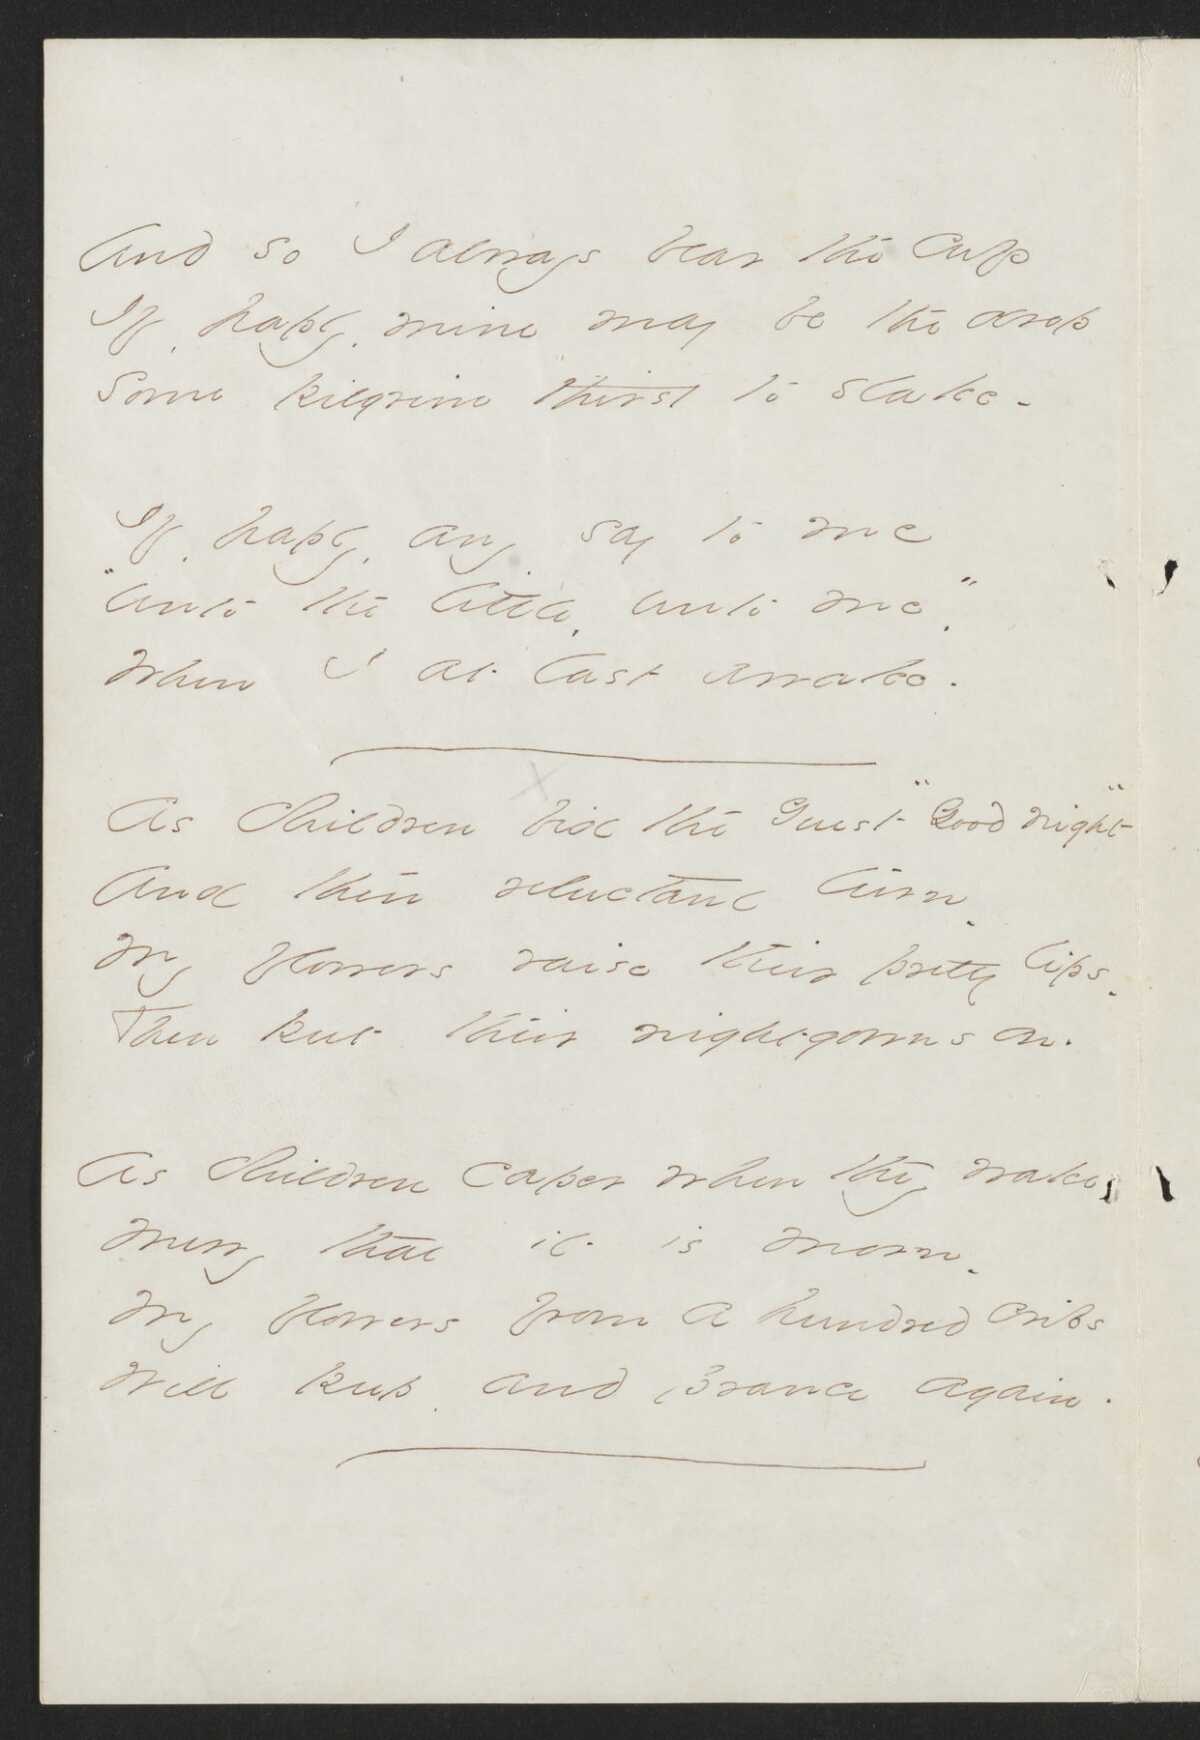 And so I always bear the cup
If, haply, mine may be the drop
Some pilgrim thirst to slake -
If, haply, any say to me
"Unto the little, unto me",
When I at last awake.
As Children bid the Guest "Good night"
And then reluctant turn,
My flowers raise their pretty lips,
Then put their nightgowns on.
As Children caper when they wake,
Merry that it is Morn,
My flowers from a hundred cribs
Will peep, and prance again.